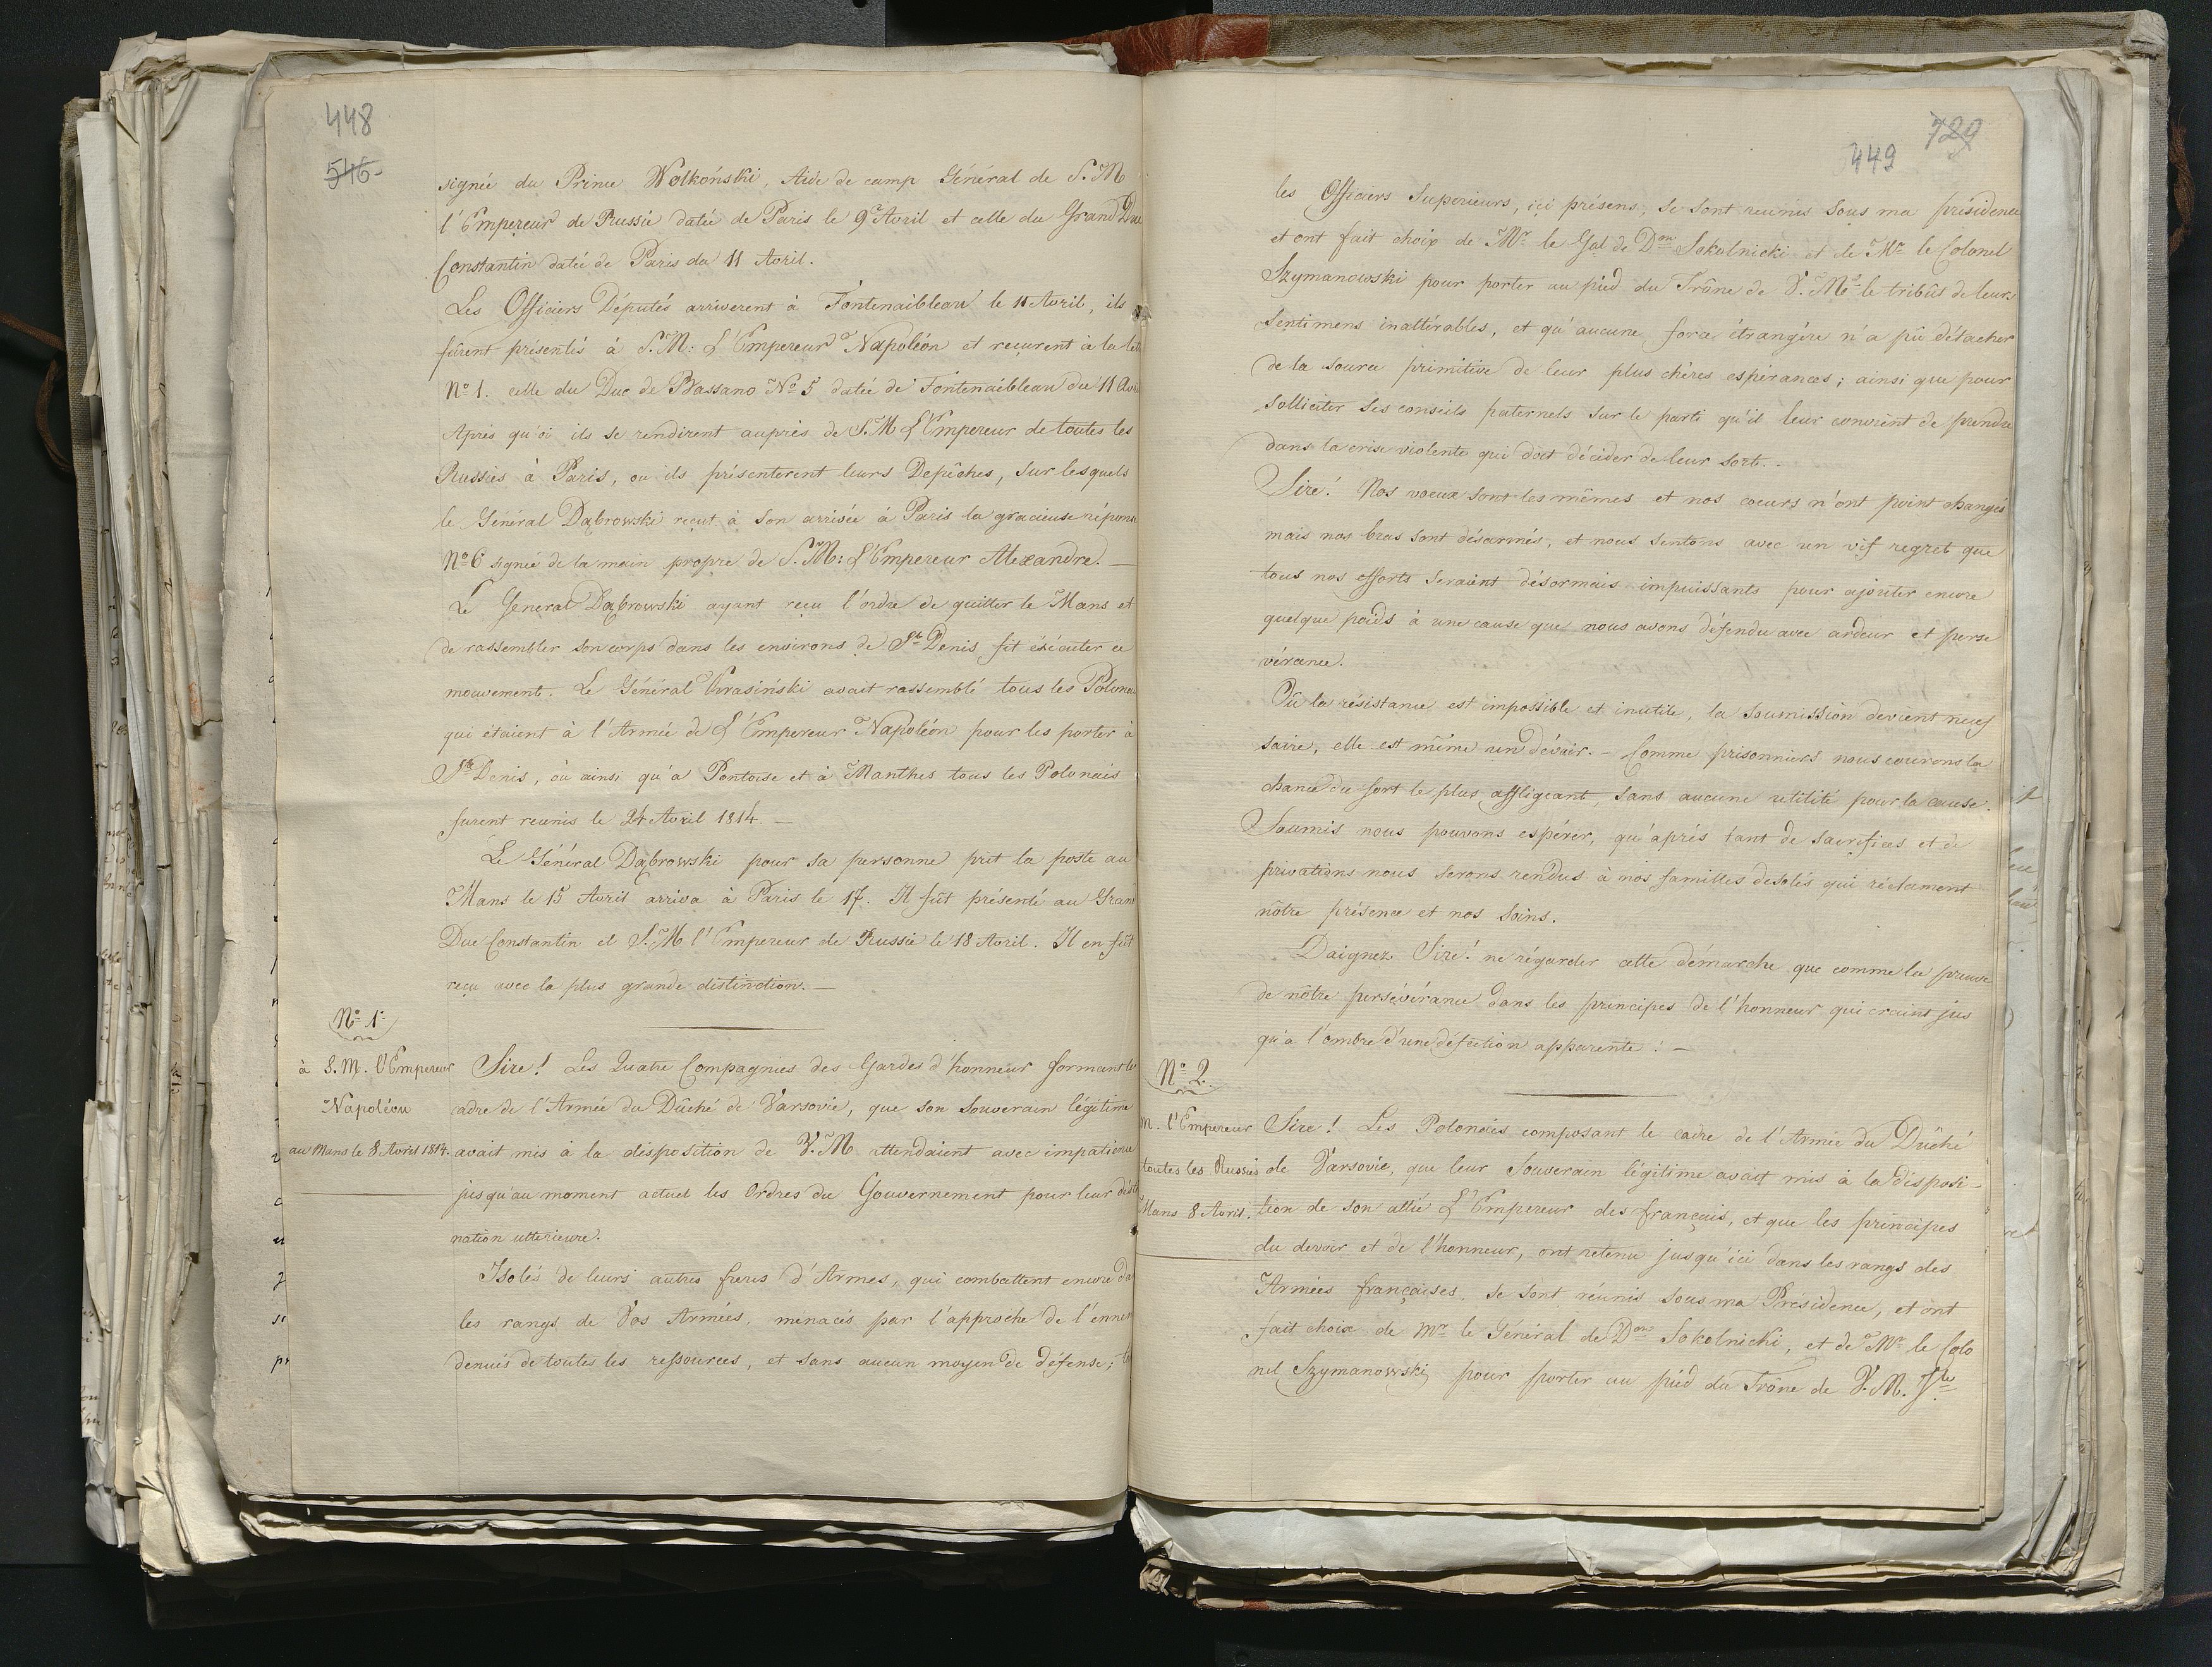 448
546
signée du Prince Wolkoński, Aide de camp Général de S. M
l'Empereur de Russie datée de Paris le 9e Avril et celle du Grand Duc
Constantin datée de Paris du 11 Avril.
Les Officiers Députés arriverent à Fontenaibleau le 11 Avril, ils
fûrent présentés à S. M: L'Empereur Napoléon et reçurent à la
No 1. celle du Duc de Bassano No 5 datée de Fontenaibleau du 11 Avr
Après qu'oi ils se rendirent auprès de S. M L'Empereur de toutes les
Russies à Paris, ou ils présenterent leurs Depêches, sur lesquels
le Général Dąbrowski reçut à son arrivée à Paris la gracieuse répons
No 6 signée de la main propre de S. M: L'Empereur Alexandre. —
Le General Dąbrowski ayant reçu l'ordre de quitter le Mans et
de rassembler son corps dans les environs de St Denis, fit éxécuter ce
mouvement. Le Général Krasiński avait rassemblé tous les Polonai
qui étaient à l'Armée de L'Empereur Napoléon pour les porter à
St Denis, où ainsi qu'a Pontoise et à Manthes tous les Polonais
furent reunis le 24 Avril 1814. —
Le Général Dąbrowski pour sa personne prit la poste au
Mans le 15 Avril arriva à Paris le 17. Il fût présenté au Grand
Duc Constantin et S. M l'Empereur de Russie le 18 Avril. Il en fût
reçu avec la plus grande distinction. —
No 1.
à S. M. l'Empereur
Napoléon
au Mans le 8 Avril 1814.
Sire! Les Quatre Compagnies des Gardes d'honneur formant le
cadre de l'Armée du Dûché de Varsovie, que son Souverain légitime
avait mis à la disposition de V. M. attendaient avec impatience
jusqu'au moment actuel les Ordres du Gouvernement pour leur désti
nation ulterieure.
Isolés de leurs autres freres d'Armes, qui combattent encore da
les rangs de Vos Armées, menacés par l'approche de l'enne
denués de toutes les ressources, et sans aucun moyen de défense;
729
449
les Officiers Superieurs, içi présens, se sont reunis sous ma présidence
et ont fait choix de Mr le Gal de Don Sokolnicki et de Mr le Colonel
Szymanowski pour porter au pied du Trône de V. Mté le tribût de leurs
sentimens inaltérables, et qu'aucune force étrangére n'a pû détacher
de la source primitive de leur plus chères espérances; ainsi que pour
solliciter ses conseils paternels sur le parti qu'il leur convient de prendre
dans la crise violente qui doit décider de leur sort. -
Sire! Nos voeux sont les mêmes et nos coeurs n'ont point changés
mais nos bras sont désarmés, et nous sentons avec un vif regret que
tous nos efforts seraient désormais impuissants pour ajouter encore
quelque poids à une cause que nous avons défendu avec ardeur et perse
vérance.
Où la résistance est impossible et inutile, la soumission devient neces
saire, elle est même un dévoir. — Comme prisonniers nous courons la
chance du sort le plus affligeant, sans aucune utilité pour la cause.
Soumis nous pouvons espérer, qu'après tant de sacrifices et de
privations nous serons rendus à nos familles desolés qui réclament
nôtre présence et nos soins.
Daignez Sire! ne régarder cette démarche que comme la preuve
de nôtre persévérance dans les principes de l'honneur qui craint jus
qu'a l'ombre d'une défection apparente! —
No 2.
M. l'Empereur
toutes les Russies
Mans 8 Avril.
Sire! Les Polonais composant le cadre de l'Armée du Dûché
de Varsovie, que leur Souverain légitime avait mis à la disposi-
tion de son allié L'Empereur des français, et que les principes
du devoir et de l'honneur, ont retenu jusqu'ici dans les rangs des
Armées françaises, se sont réunis sous ma Présidence, et ont
fait choix de Mr le Général de Don Sokolnicki, et de Mr le Colo
nel Szymanowski, pour porter au pied du Trône de V. M. Jle